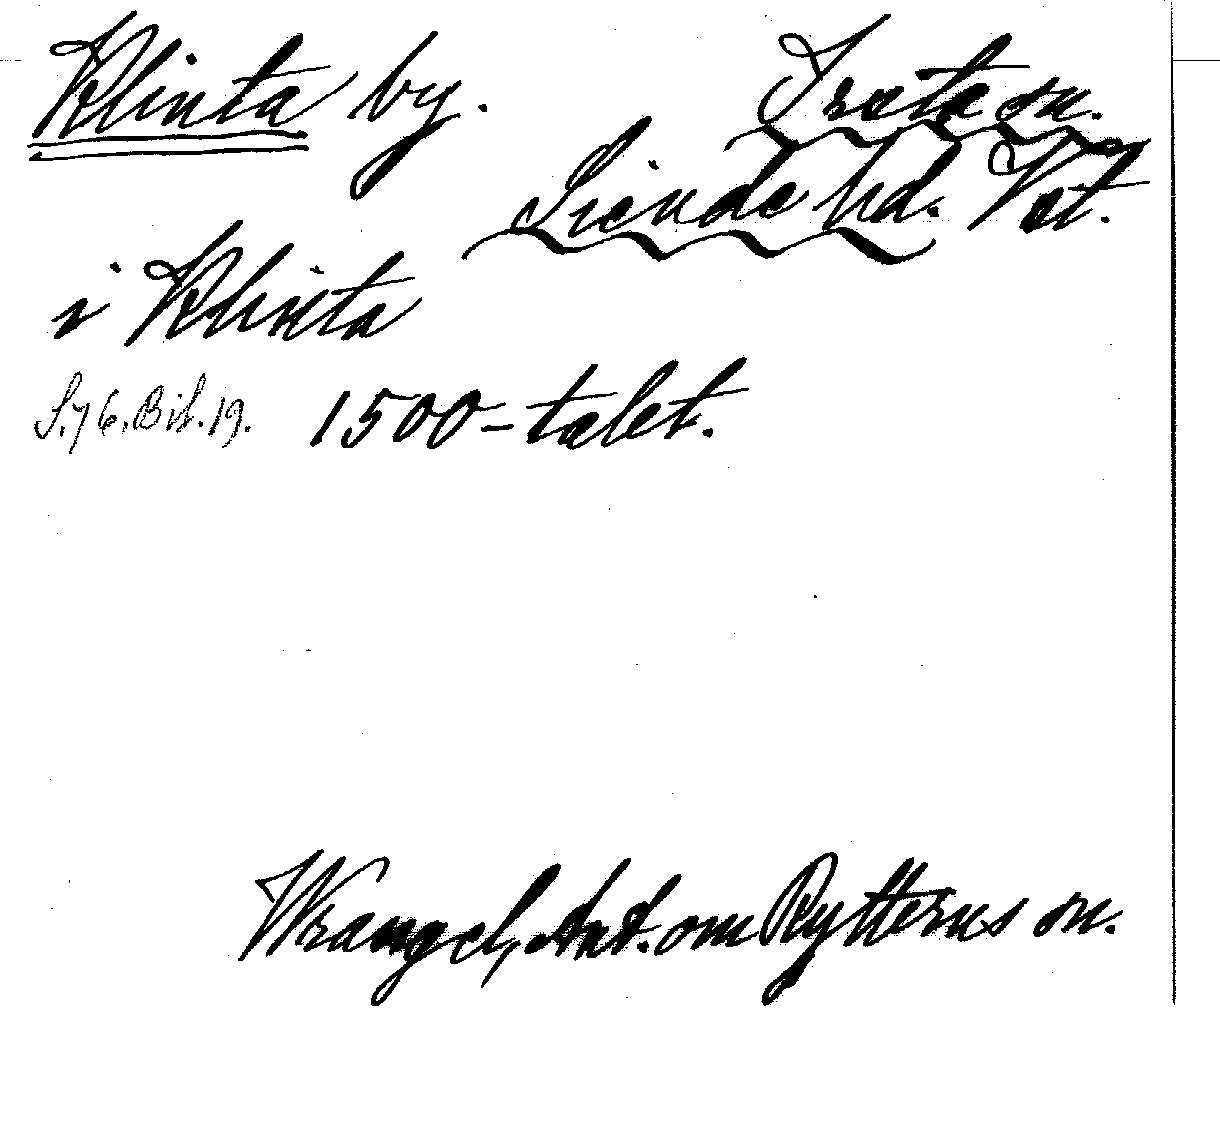 Klinta by. Irsta sn.
Siende hd. Vst.
i Klinta
S.76. Bil.19. 1500-talet.
Wrangel, Ant. om Rytterns sn.